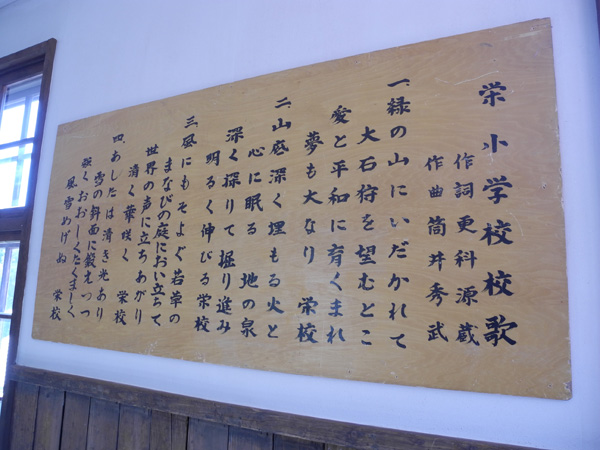 栄小学校校歌
作詞更科源蔵
作曲筒井秀武
一、緑の山にいだかれて
大石狩を望むとこ
愛と平和に育くまれ
夢も大なり 栄校
二、山底深く埋もる火と
心に眠る 地の泉
深く探りて掘り進み
明るく伸びる栄校
三、風にもそよぐ若草の
まなびの庭におい立ちて
世界の声に立ちあがり
清く華咲く 栄校
四、あしたは清き光あり
雪の斜面に鍛えつつ
強くおおしくたくましく
風雪めげぬ 栄校